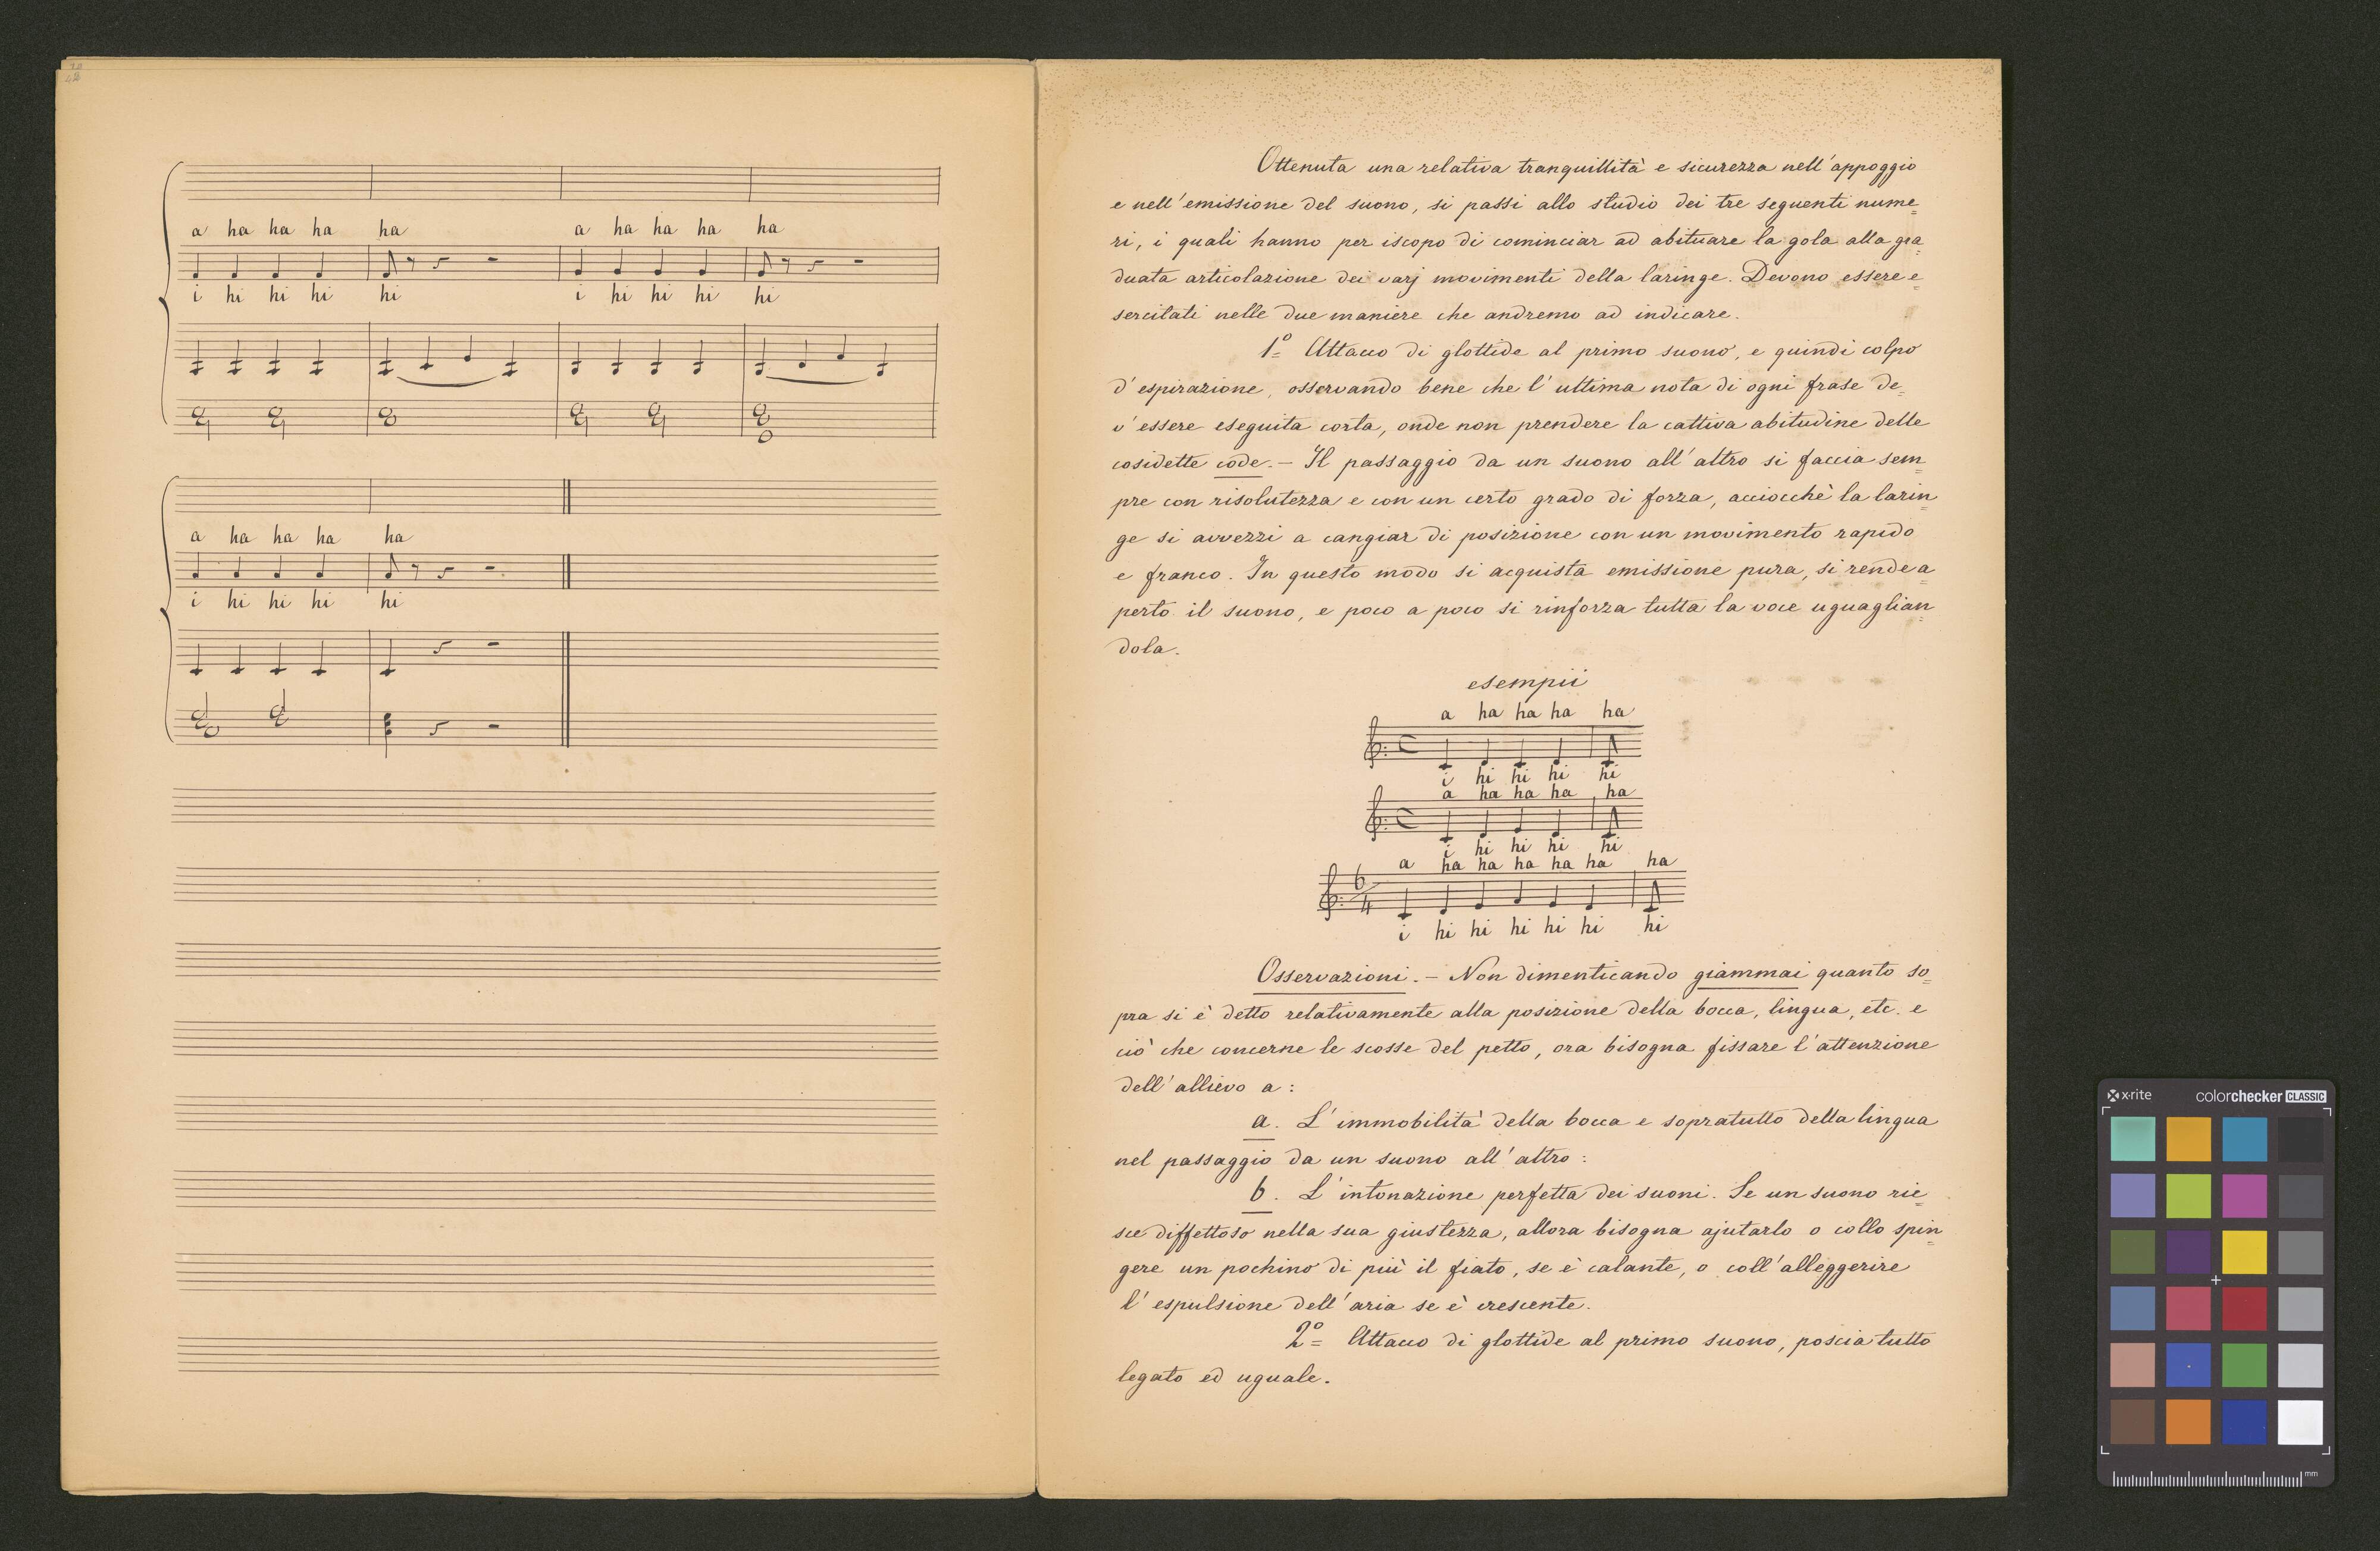 42
a ha ha ha ha a ha ha ha ha
i hi hi hi hi i hi hi hi hi
a ha ha ha ha
i hi hi hi hi
Ottenuta una relativa tranquillità e sicurezza nell'appoggio
e nell'emissione del suono, si passi allo studio dei tre seguenti nume=
ri, i quali hanno per iscopo di cominciar ad abituare la gola alla gra=
duata articolazione dei varj movimenti della laringe. Devono essere e=
sercitati nelle due maniere che andremo ad indicare.
1º Attacco di glottide al primo suono, e quindi colpo
d'espirazione, osservando bene che l'ultima nota di ogni frase de=
v'essere eseguita corta, onde non prendere la cattiva abitudine delle
cosidette code. – Il passaggio da un suono all'altro si faccia sem=
pre con risolutezza e con un certo grado di forza, acciocchè la larin=
ge si avvezzi a cangiar di posizione con un movimento rapido
e franco. In questo modo si acquista emissione pura, si rende a=
perto il suono, e poco a poco si rinforza tutta la voce uguaglian=
dola.
esempii
a ha ha ha ha
i hi hi hi hi
a ha ha ha ha
i hi hi hi hi
a ha ha ha ha ha ha
6
4
i hi hi hi hi hi hi
Osservazioni. – Non dimenticando giammai quanto so=
pra si è detto relativamente alla posizione della bocca, lingua, etc. e
ciò che concerne le scosse del petto, ora bisogna fissare l'attenzione
dell'allievo a:
a. L'immobilità della bocca e sopratutto della lingua
nel passaggio da un suono all'altro:
b. L'intonazione perfetta dei suoni. Se un suono rie=
sce diffettoso nella sua giustezza, allora bisogna ajutarlo o collo spin=
gere un pochino di più il fiato, se è calante, o coll'alleggerire
l'espulsione dell'aria se è crescente.
2º Attacco di glottide al primo suono, poscia tutto
legato ed uguale.
x·rite colorchecker CLASSIC
mm